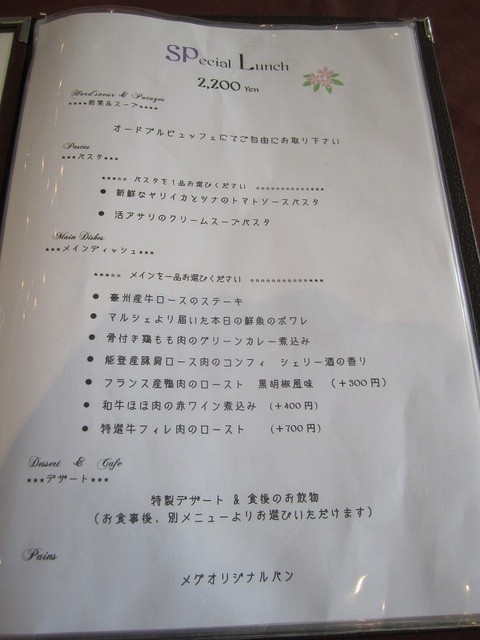 SPecial Lunch
2,200 Yen
Hord'oeuvr & Potages
****前菜&スープ****
オードブルビュッフェにてご自由にお取り下さい
Pastas
***パスタ***
***** パスタを1品お選びください **************
● 新鮮なヤリイカとツナのトマトソースパスタ
● 活アサリのクリームスープパスタ
Main Dishes
***メインディッシュ***
***** メインを一品お選びください **************
● 豪州産牛ロースのステーキ
● マルシェより届いた本日の鮮魚のポワレ
● 骨付き鶏もも肉のグリーンカレー煮込み
● 能登産豚肩ロース肉のコンフィ シェリー酒の香り
● フランス産鴨肉のロースト 黒胡椒風味 (+300円)
● 和牛ほほ肉の赤ワイン煮込み (+400円)
● 特選牛フィレ肉のロースト (+700円)
Dessert & Cafe
***デザート***
特製デザート & 食後のお飲物
(お食事後、別メニューよりお選びいただけます)
Pains
メグオリジナルパン